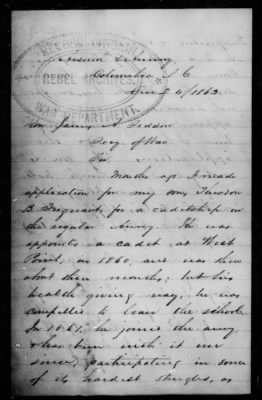 Columbia, S. C.
4/1863.
REBEL ARCHIVES
WAR DEPARTMENT.
Hon. James A. Seddon
Secy of War
Sir
Months ago I made
application for my son, Theodore
B. for a cadetship in
the regular Army. He was
appointed a cadet at West
Point, in 1860, and was there
about three months; but his
health giving way, he was
compelled to leave the school.
In 1861, he joined the army,
& has been with it ever
since, participating in some
of its hardest struggles, as